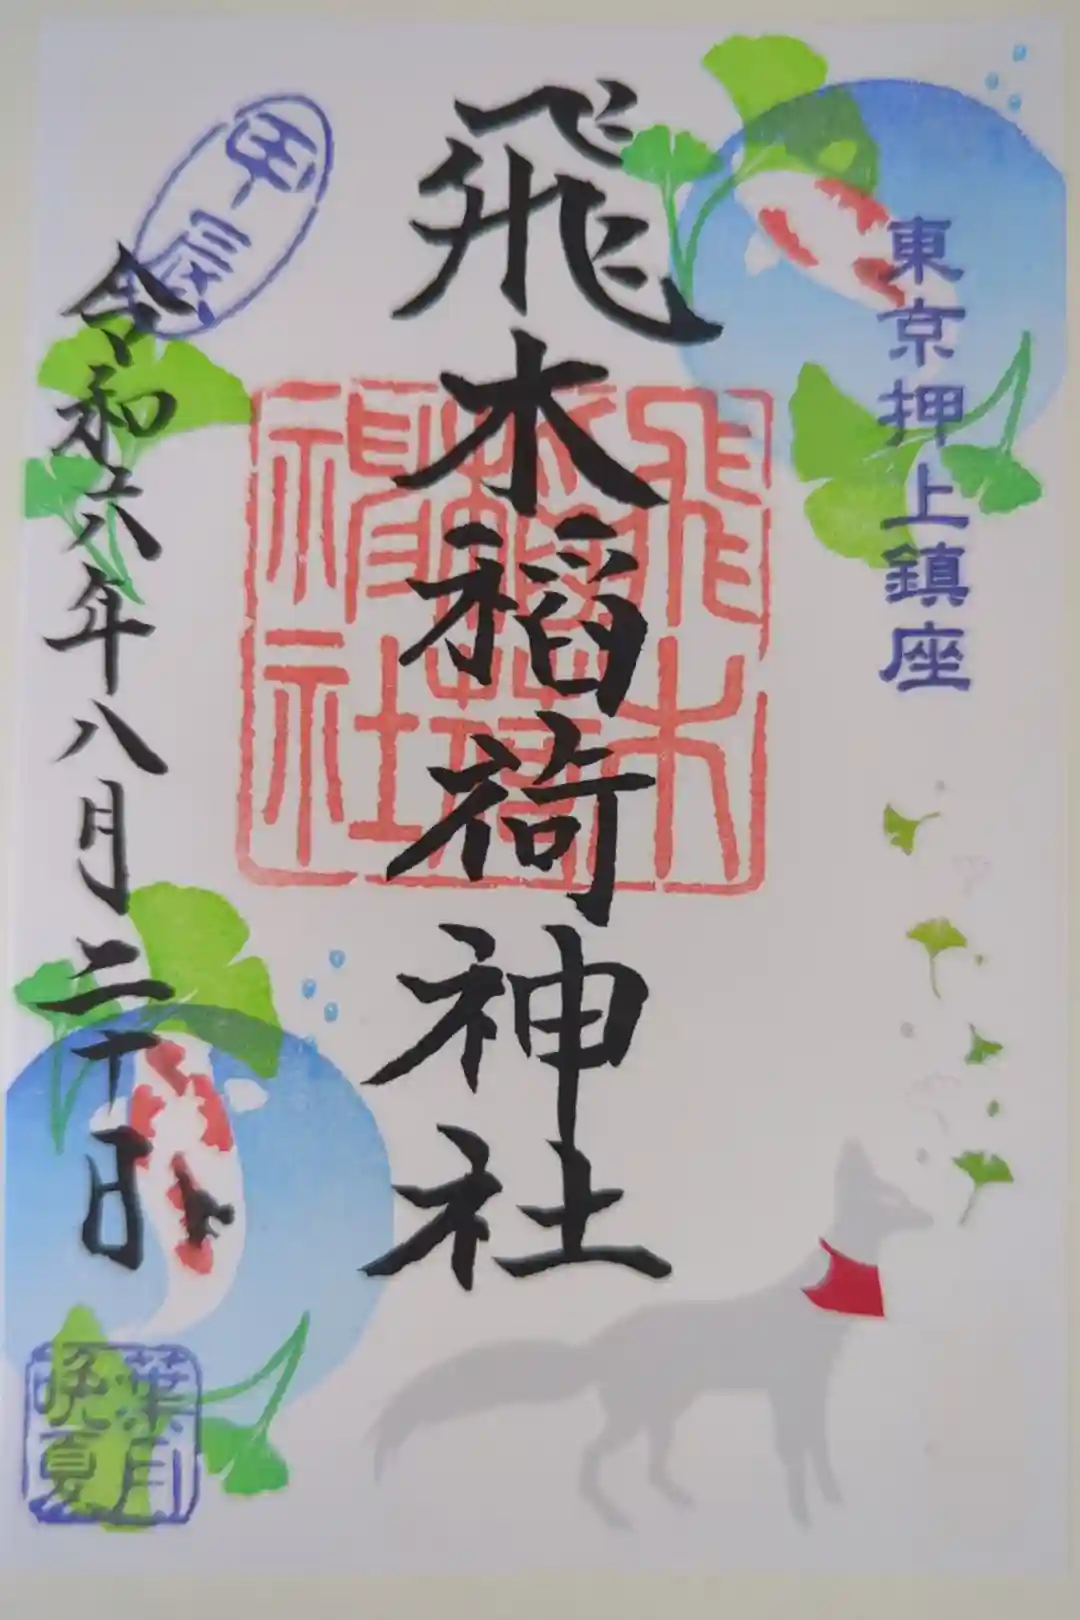 東京押上鎮座
飛木稲荷神社
飛木
稲荷
神社
甲辰
令和六年八月二十日
葉月
晩夏